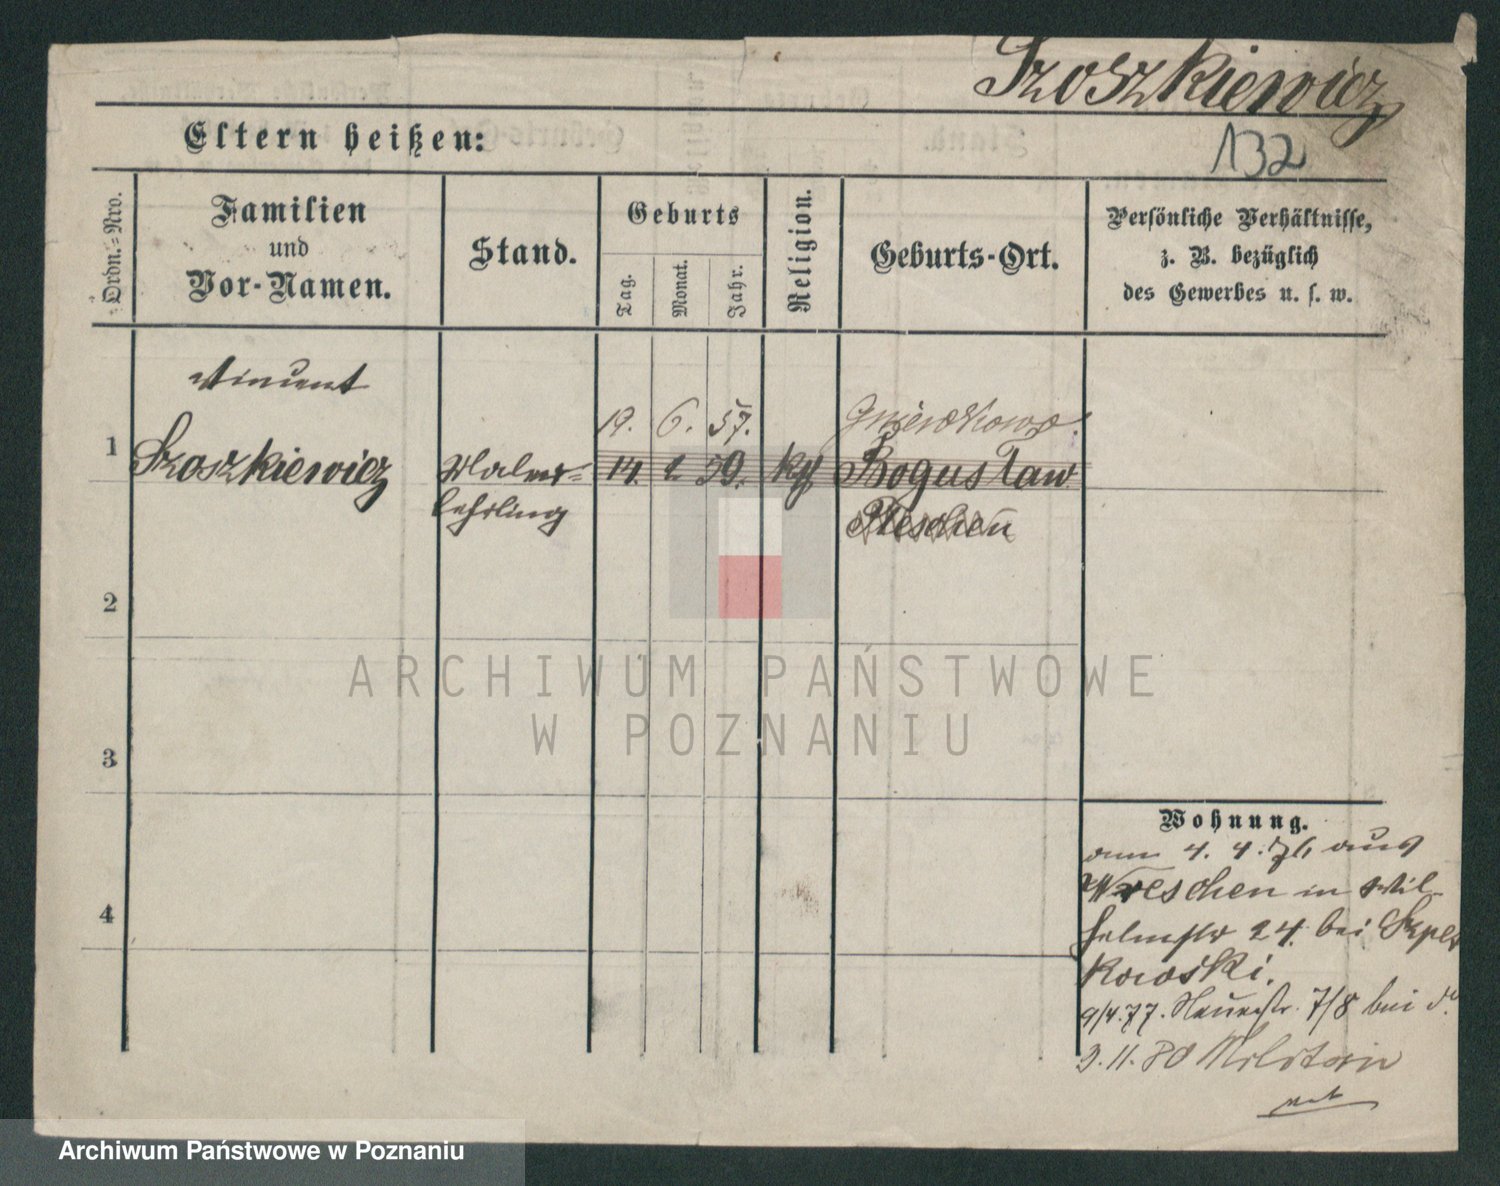 Szoszkiewicz
132
Eltern heißen:
Ordn.-Nro.
Familien
und
Vor-Namen.
Stand.
Geburts
Tag.
Monat.
Jahr.
Religion.
Geburts-Ort.
Persönliche Verhältnisse,
z. B. bezüglich
des Gewerbes u. s. w.
Vincent
19. 6. 57. Gniewkowo.
1 Szoszkiewicz Maler- 14. 2 59. kth Bogusław
lehrling Pleschen
2
3
4
ARCHIWUM PAŃSTWOWE
W POZNANIU
Wohnung.
am 4. 4. 76 aus
Wreschen in Wil-
helmstr 24. bei
kowski.
9/4.77. Neuestr. 7/8 bei
3.11.80 Militair
Archiwum Państwowe w Poznaniu